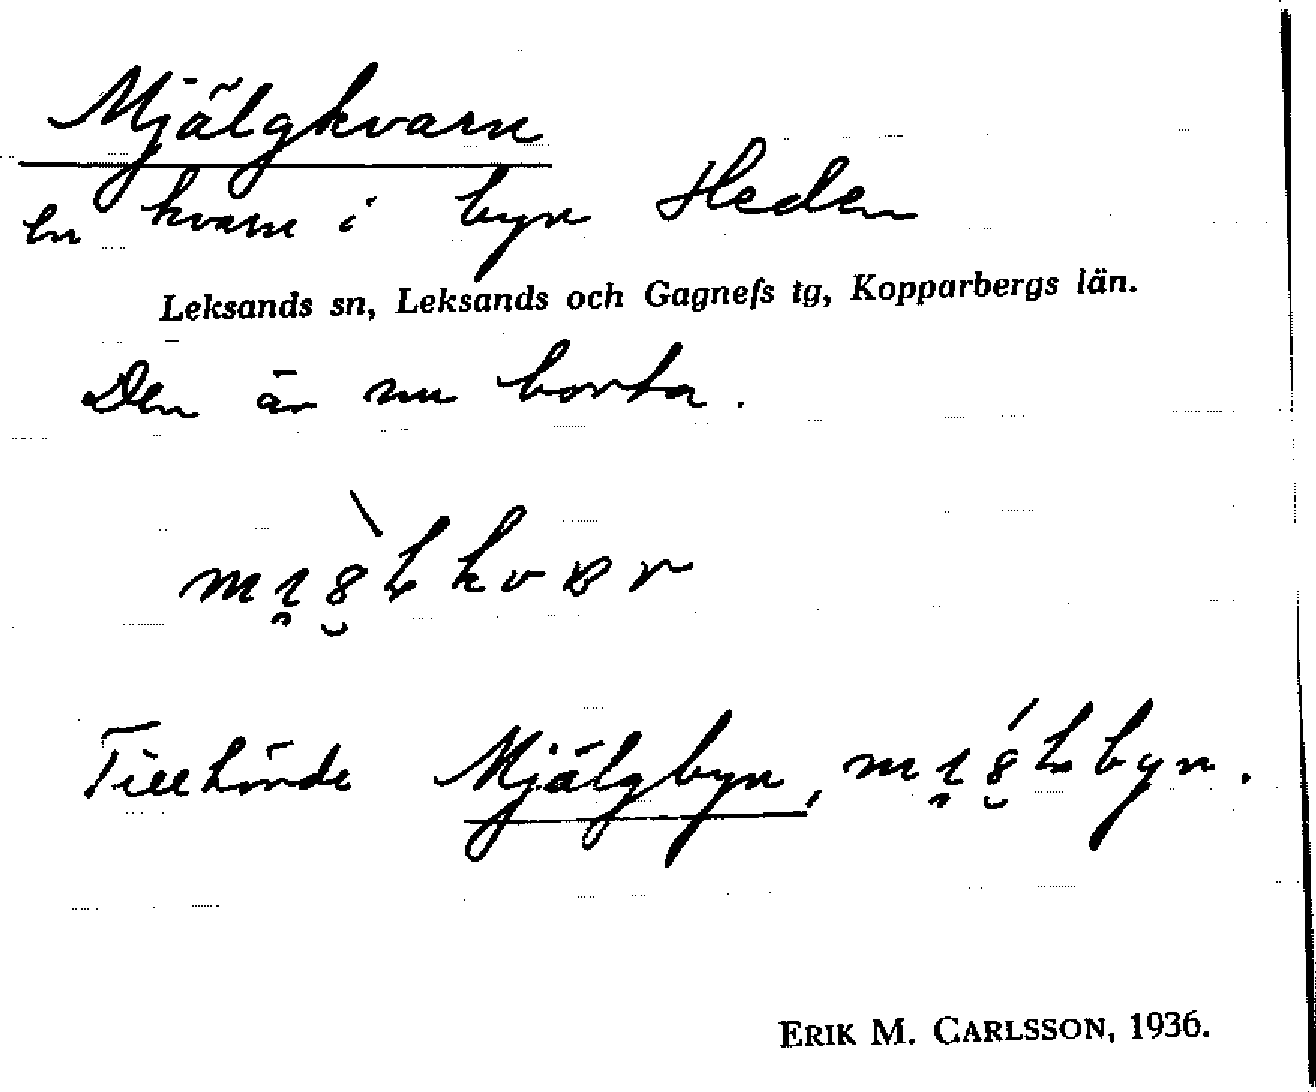 Mjälgkvarn
en kvarn i byn Heden
Leksands sn, Leksands och Gagnefs tg, Kopparbergs län.
Den är nu borta.
Tillhörde Mjälgbyn,
ERIK M. CARLSSON, 1936.